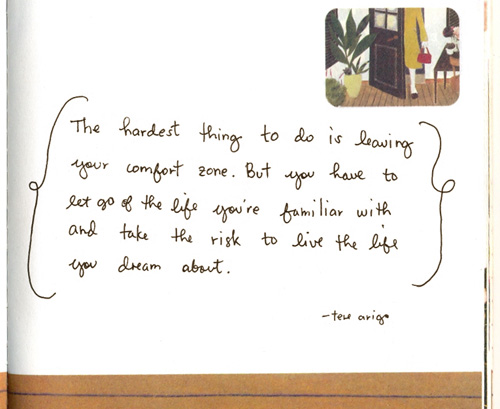 The hardest thing to do is leaving
your comfort zone. But you have to
let go of the life you're familiar with
and take the risk to live the life
you dream about.
-tere arigo